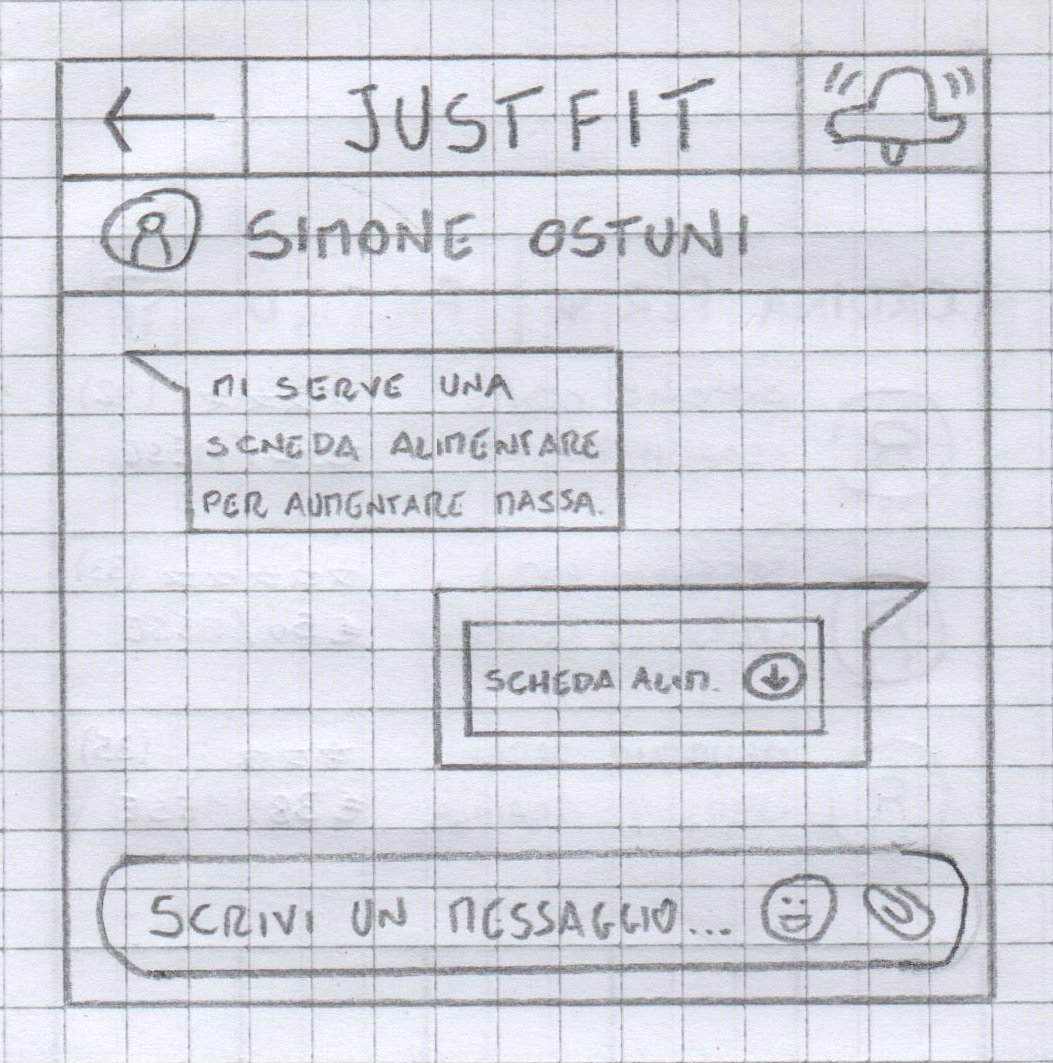 JUSTFIT
SIMONE OSTUNI
MI SERVE UNA
SCHEDA ALIMENTARE
PER AUMENTARE MASSA.
SCHEDA ALIM.
SCRIVI UN MESSAGGIO...